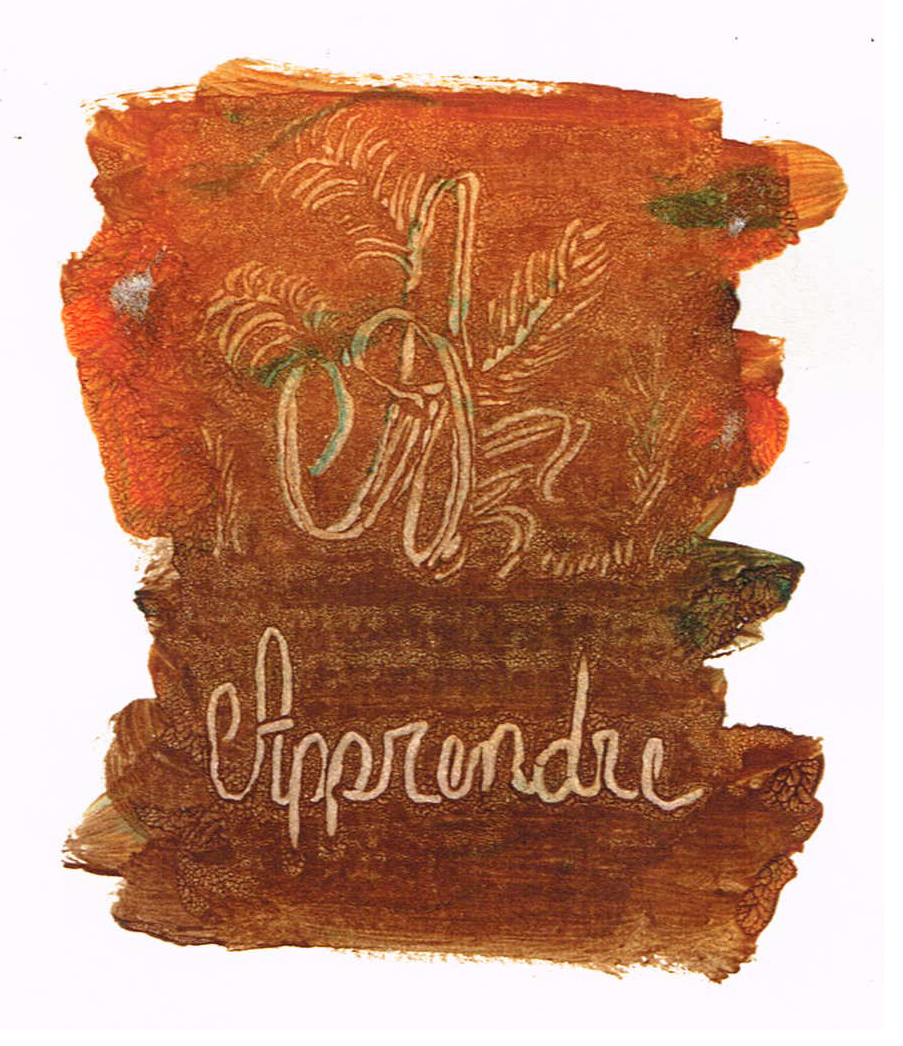 A
Apprendre